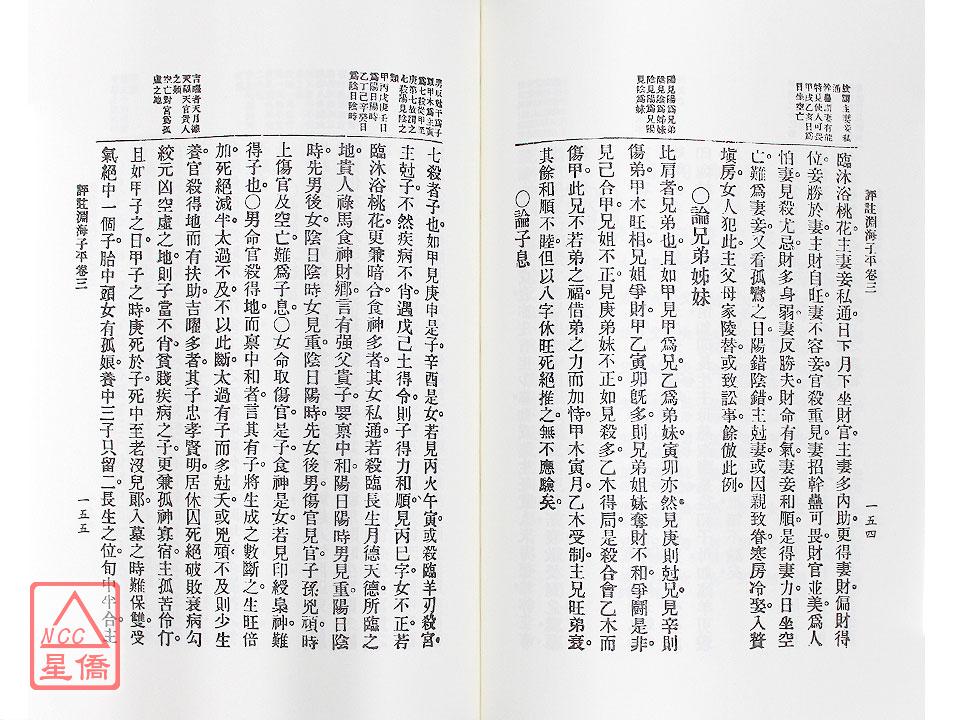 評註淵海子平卷三
一五四
臨沐浴桃花主妻妾私通日下月下坐財官主妻多內助更得妻財偏財得
位妾勝於妻主財自旺妻不容妾官殺重見妻招幹蠱可畏財官並美為人
怕妻見殺尤忌財多身弱妻反勝夫財命有氣妻妾和順是得妻力日坐空
亡難為妻妾又看孤鸞之日陽錯陰錯主尅妻或因親致眷寒房冷娶入贅
塡房女人犯此主父母家陵替或致訟事餘倣此例
〇論兄弟姊妹
比肩者兄弟也且如甲見甲為兄乙為弟妹寅卯亦然見庚則尅兄見辛則
傷弟甲木旺相兄姐爭財甲乙寅卯旣多則兄弟姐妹奪財不和爭鬭是非
見己合甲兄姐不正見庚弟妹不正如見殺多乙木得局是殺合會乙木而
傷甲此兄不若弟之福借弟之力而加恃甲木寅月乙木受制主兄旺弟衰
其餘和順不睦但以八字休旺死絕推之無不應驗矣
〇論子息
陽見陽為兄弟
陰見陰為姊妹
陰見陽為兄
見陰為姊妹
七殺者子也如甲見庚申是子辛酉是女若見丙火午寅或殺臨羊刃殺宮
主尅子不然疾病不肖遇戊己土得令則子得力和順見丙巳字女不正若
臨沐浴桃花更兼暗合食神多者其女私通若殺臨長生月德天德所臨之
地貴人祿馬食神財鄉言有强父貴子要稟中和陽日陽時男見重陽日陰
時先男後女陰日陰時女見重陰日陽時先女後男傷官見官子孫兇頑時
上傷官及空亡難為子息〇女命取傷官是子食神是女若見印綬梟神難
得子也〇男命官殺得地而稟中和者言其有子將生成之數斷之生旺倍
加死絕減半太過不及不以此斷太過有子而多尅夭或兇頑不及則少生
養官殺得地而有扶助吉曜多者其子忠孝賢明居休囚死絕破敗衰病勾
絞元凶空虛之地則子當不肖貧賤疾病之子更兼孤神寡宿主孤苦伶仃
且如甲子之日甲子之時庚死於子死中至老沒兒郞入墓之時難保雙受
氣絕中一個子胎中頭女有孤娘養中三子只留二長生之位旬中半合主
甲丙戊庚壬日
為陽日陽時
乙丁己辛癸日
為陰日陰時
吉曜者天月德
天福天官貴人
之類
空亡對宮為孤
虛之地
評註淵海子平卷三
一五五
NCC
星僑